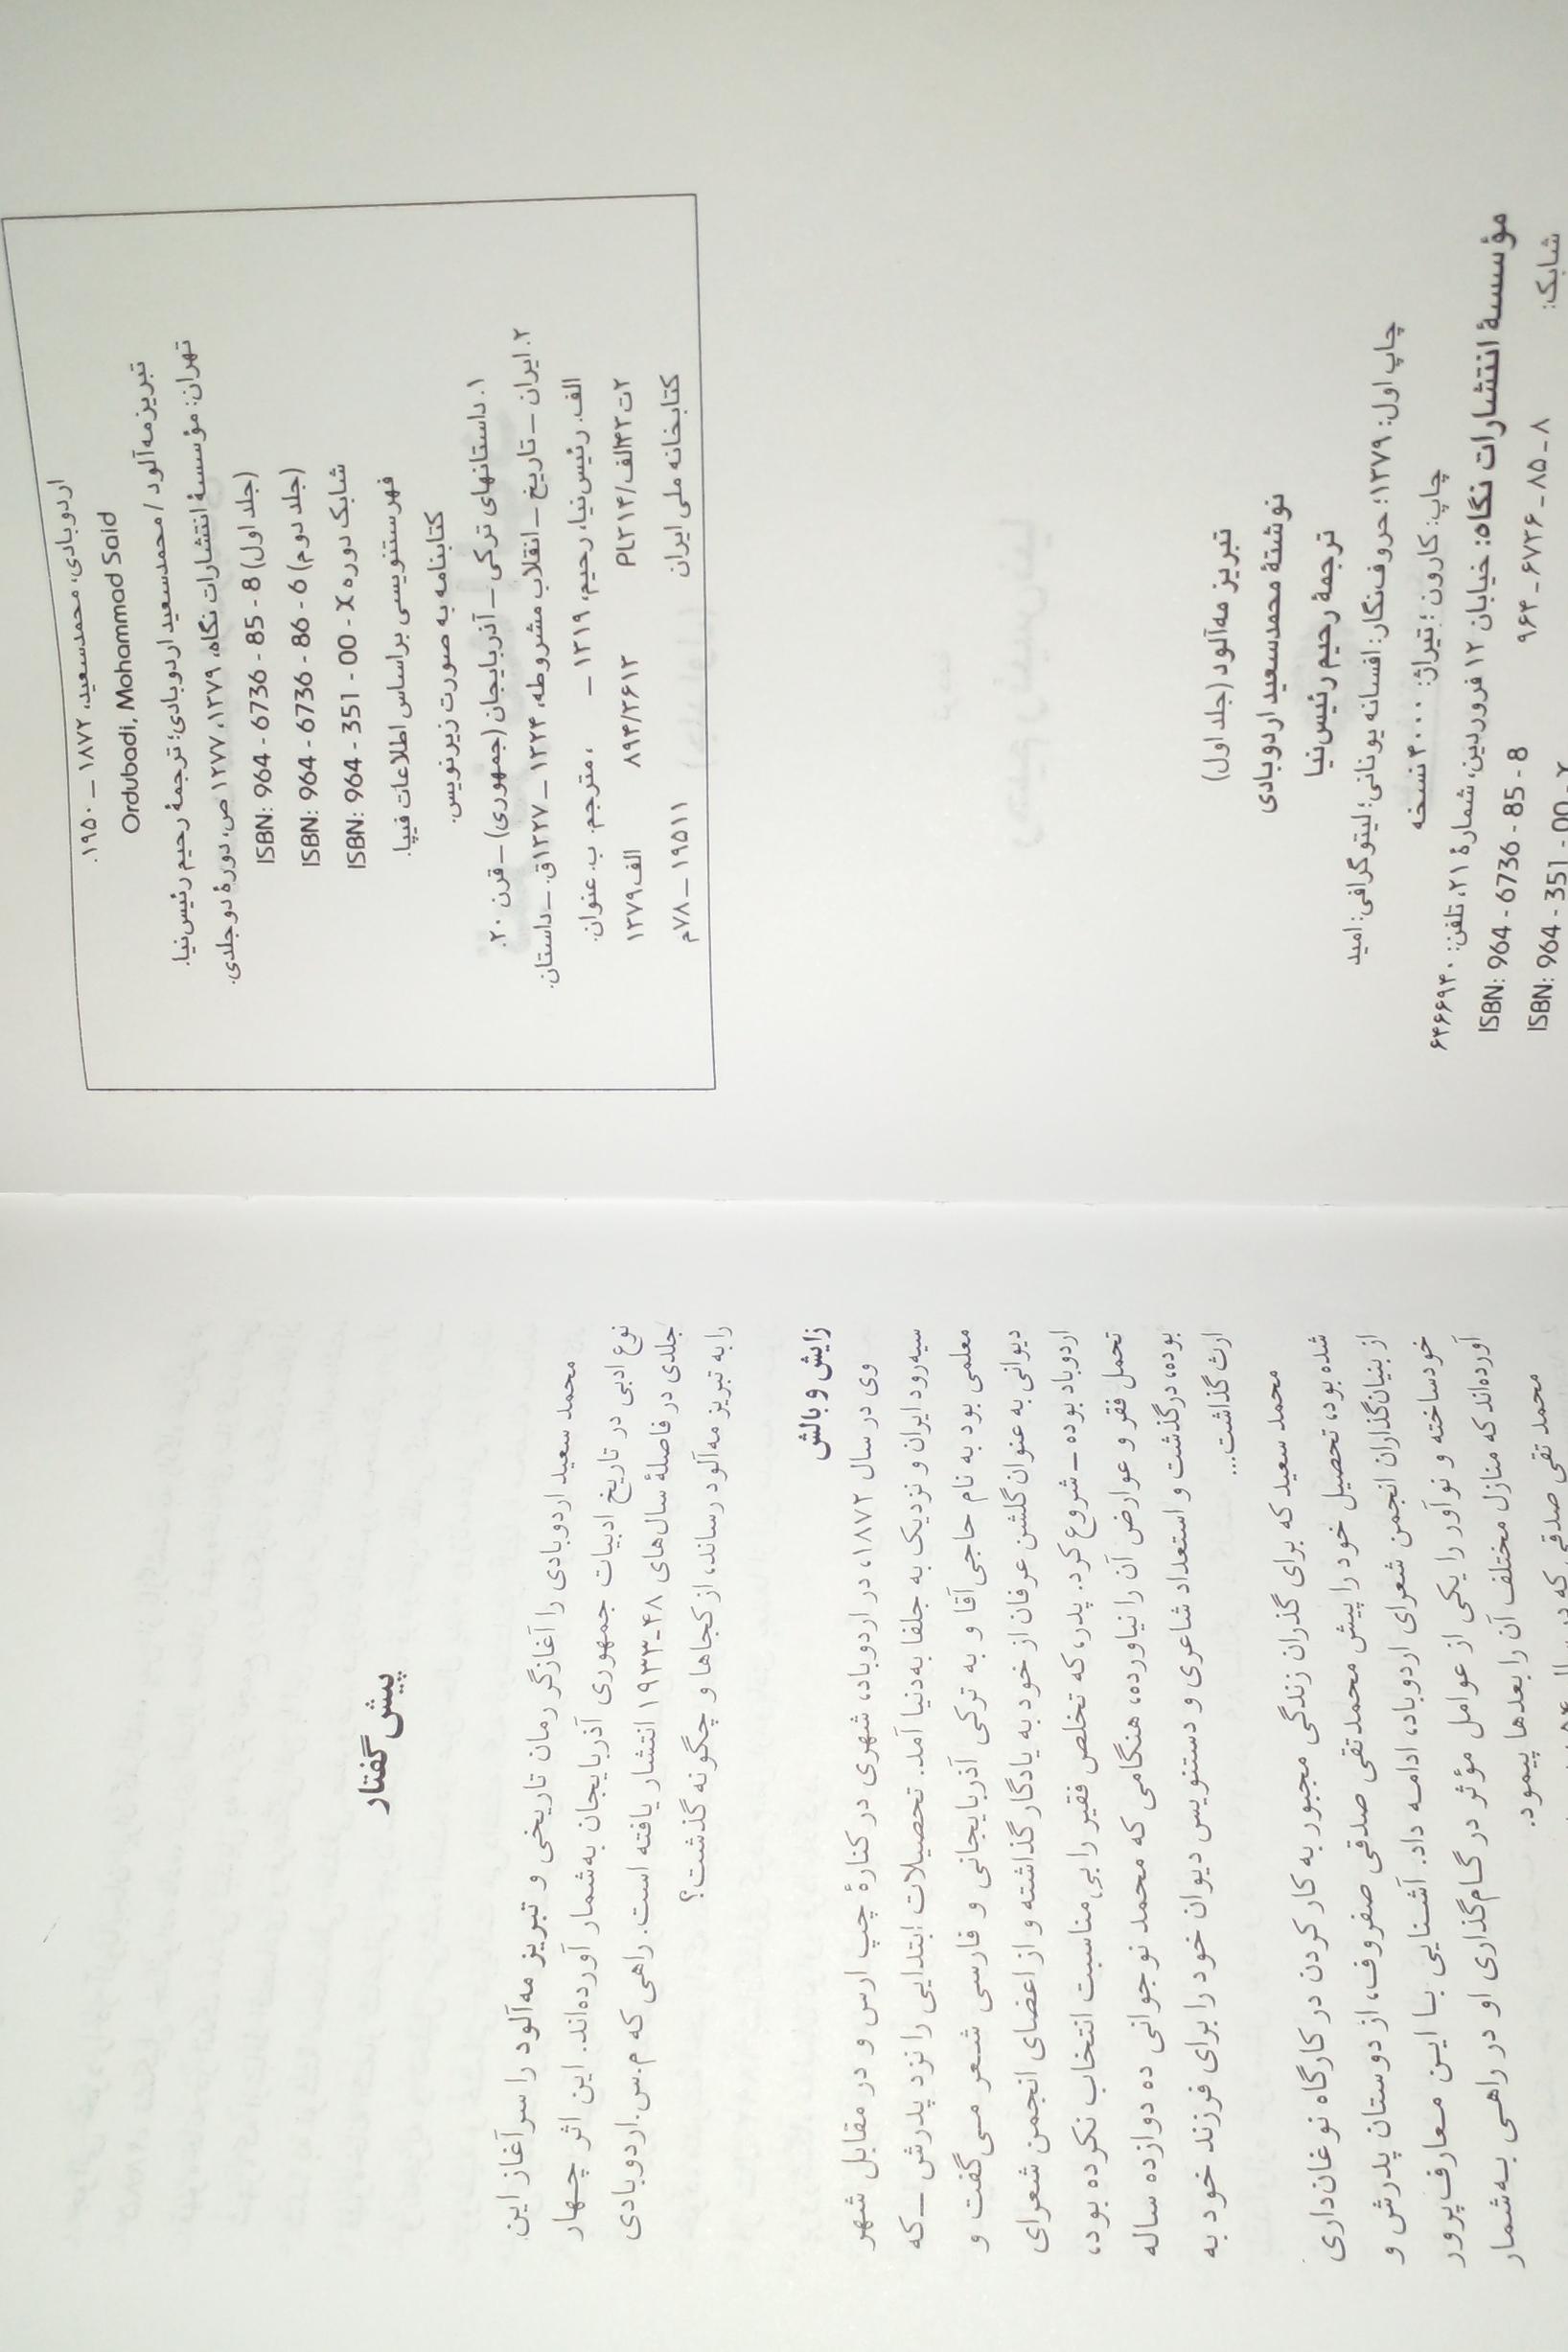 اردوبادی، محمدسعید، ۱۸۷۲ ــ ۱۹۵۰.
Ordubadi, Mohammad Said
تبریز مه‌آلود / محمدسعید اردوبادی؛ ترجمهٔ رحیم رئیس‌نیا.
تهران: مؤسسهٔ انتشارات نگاه، ۱۳۷۹، ۱۲۷۷ ص، دورهٔ دو جلدی.
ISBN: 964 - 6736 - 85 - 8 (جلد اول)
ISBN: 964 - 6736 - 86 - 6 (جلد دوم)
ISBN: 964 - 351 - 00 - X شابک دوره
فهرستنویسی براساس اطلاعات فیپا.
کتابنامه به صورت زیرنویس.
۱. داستانهای ترکی ــ آذربایجان (جمهوری) ــ قرن ۲۰.
۲. ایران ــ تاریخ ــ انقلاب مشروطه، ۱۳۲۴ ــ ۱۳۲۷ق. ــ داستان.
الف. رئیس‌نیا، رحیم، ۱۳۱۹ ــ ، مترجم. ب. عنوان.
۲ت۴۳الف/PL۳۱۴ ۸۹۴/۳۶۱۳ الف۱۳۷۹
کتابخانه ملی ایران ۱۹۵۱۱ ــ ۷۸م
تبریز مه‌آلود (جلد اول)
نوشتهٔ محمدسعید اردوبادی
ترجمهٔ رحیم رئیس‌نیا
چاپ اول: ۱۳۷۹؛ حروف‌نگار: افسانه یونانی؛ لیتوگرافی: امید
چاپ: کارون؛ تیراژ: ۴۰۰۰ نسخه
مؤسسهٔ انتشارات نگاه: خیابان ۱۲ فروردین، شمارهٔ ۲۱، تلفن: ۶۴۶۶۹۴۰
ISBN: 964 - 6736 - 85 - 8 ۹۶۴ ــ ۶۷۳۶ ــ ۸۵ ــ ۸
شابک: ISBN: 964 - 351 - 00 -
پیش گفتار
محمد سعید اردوبادی را آغازگر رمان تاریخی و تبریز مه‌آلود را سرآغاز این
نوع ادبی در تاریخ ادبیات جمهوری آذربایجان به‌شمار آورده‌اند. این اثر چهار
جلدی در فاصلهٔ سال‌های ۴۸ـ۱۹۳۳ انتشار یافته است. راهی که م.س.اردوبادی
را به تبریز مه‌آلود رساند، از کجاها و چگونه گذشت؟
زایش و بالش
وی در سال ۱۸۷۲، در اردوباد، شهری در کنارهٔ چپ ارس و در مقابل شهر
سیه‌رود ایران و نزدیک به جلفا به‌دنیا آمد. تحصیلات ابتدایی را نزد پدرش ــ که
معلمی بود به نام حاجی‌آقا و به ترکی آذربایجانی و فارسی شعر می‌گفت و
دیوانی به عنوان گلشن عرفان از خود به یادگار گذاشته و از اعضای انجمن شعرای
اردوباد بوده ــ شروع کرد. پدر، که تخلص فقیر را بی‌مناسبت انتخاب نکرده بود،
تحمل فقر و عوارض آن را نیاورده، هنگامی که محمد نوجوانی ده دوازده ساله
بوده، درگذشت و استعداد شاعری و دستنویس دیوان خود را برای فرزند خود به
ارث گذاشت...
محمد سعید که برای گذران زندگی مجبور به کار کردن در کارگاه نوغان‌داری
شده بود، تحصیل خود را پیش محمدتقی صدقی صفروف، از دوستان پدرش و
از بنیان‌گذاران انجمن شعرای اردوباد، ادامه داد. آشنایی با این معارف‌پرور
خودساخته و نوآور را یکی از عوامل مؤثر در گام‌گذاری او در راهی به‌شمار
آورده‌اند که منازل مختلف آن را بعدها پیمود.
محمد تقی صدقی که در